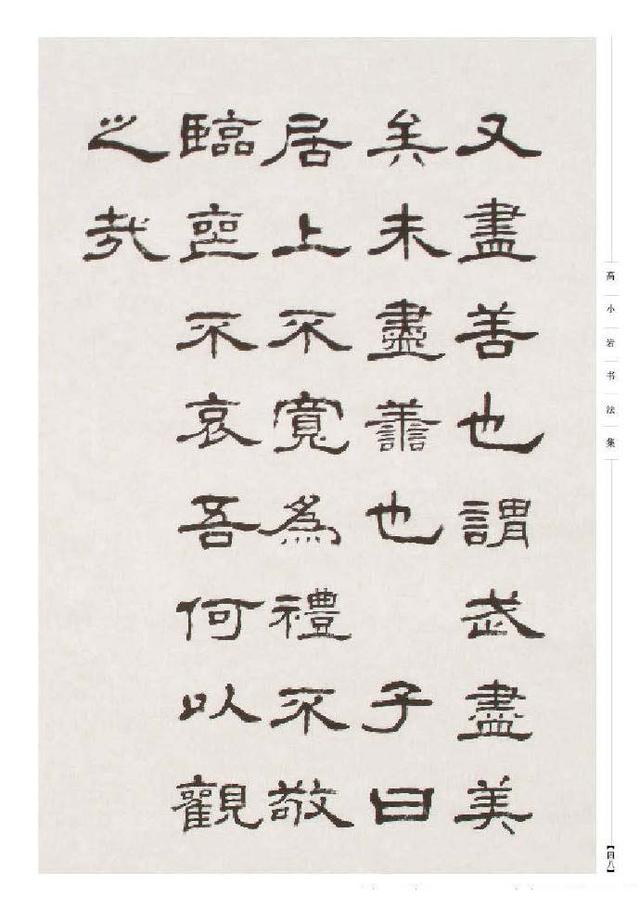 又盡善也謂武盡美
矣未盡善也 子曰
居上不寬為禮不敬
臨喪不哀吾何以觀
之哉
高小岩书法集
【四八】